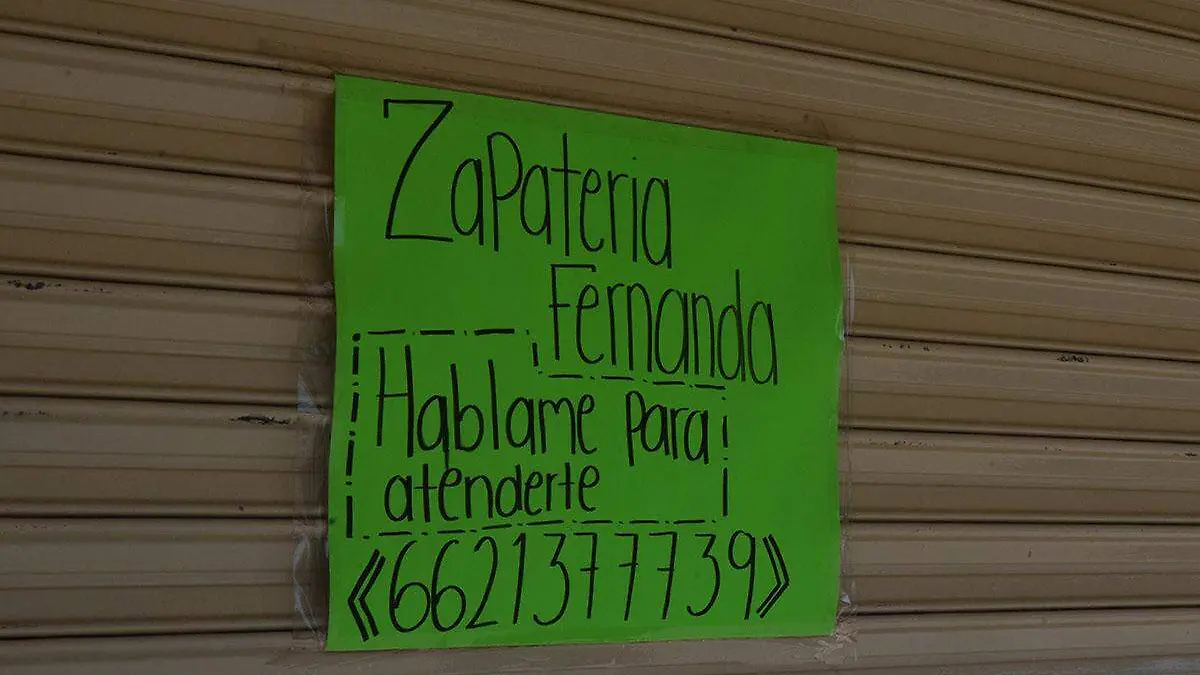 ZaPateria
Fernanda
Hablame Para
atenderte
《6621377739》